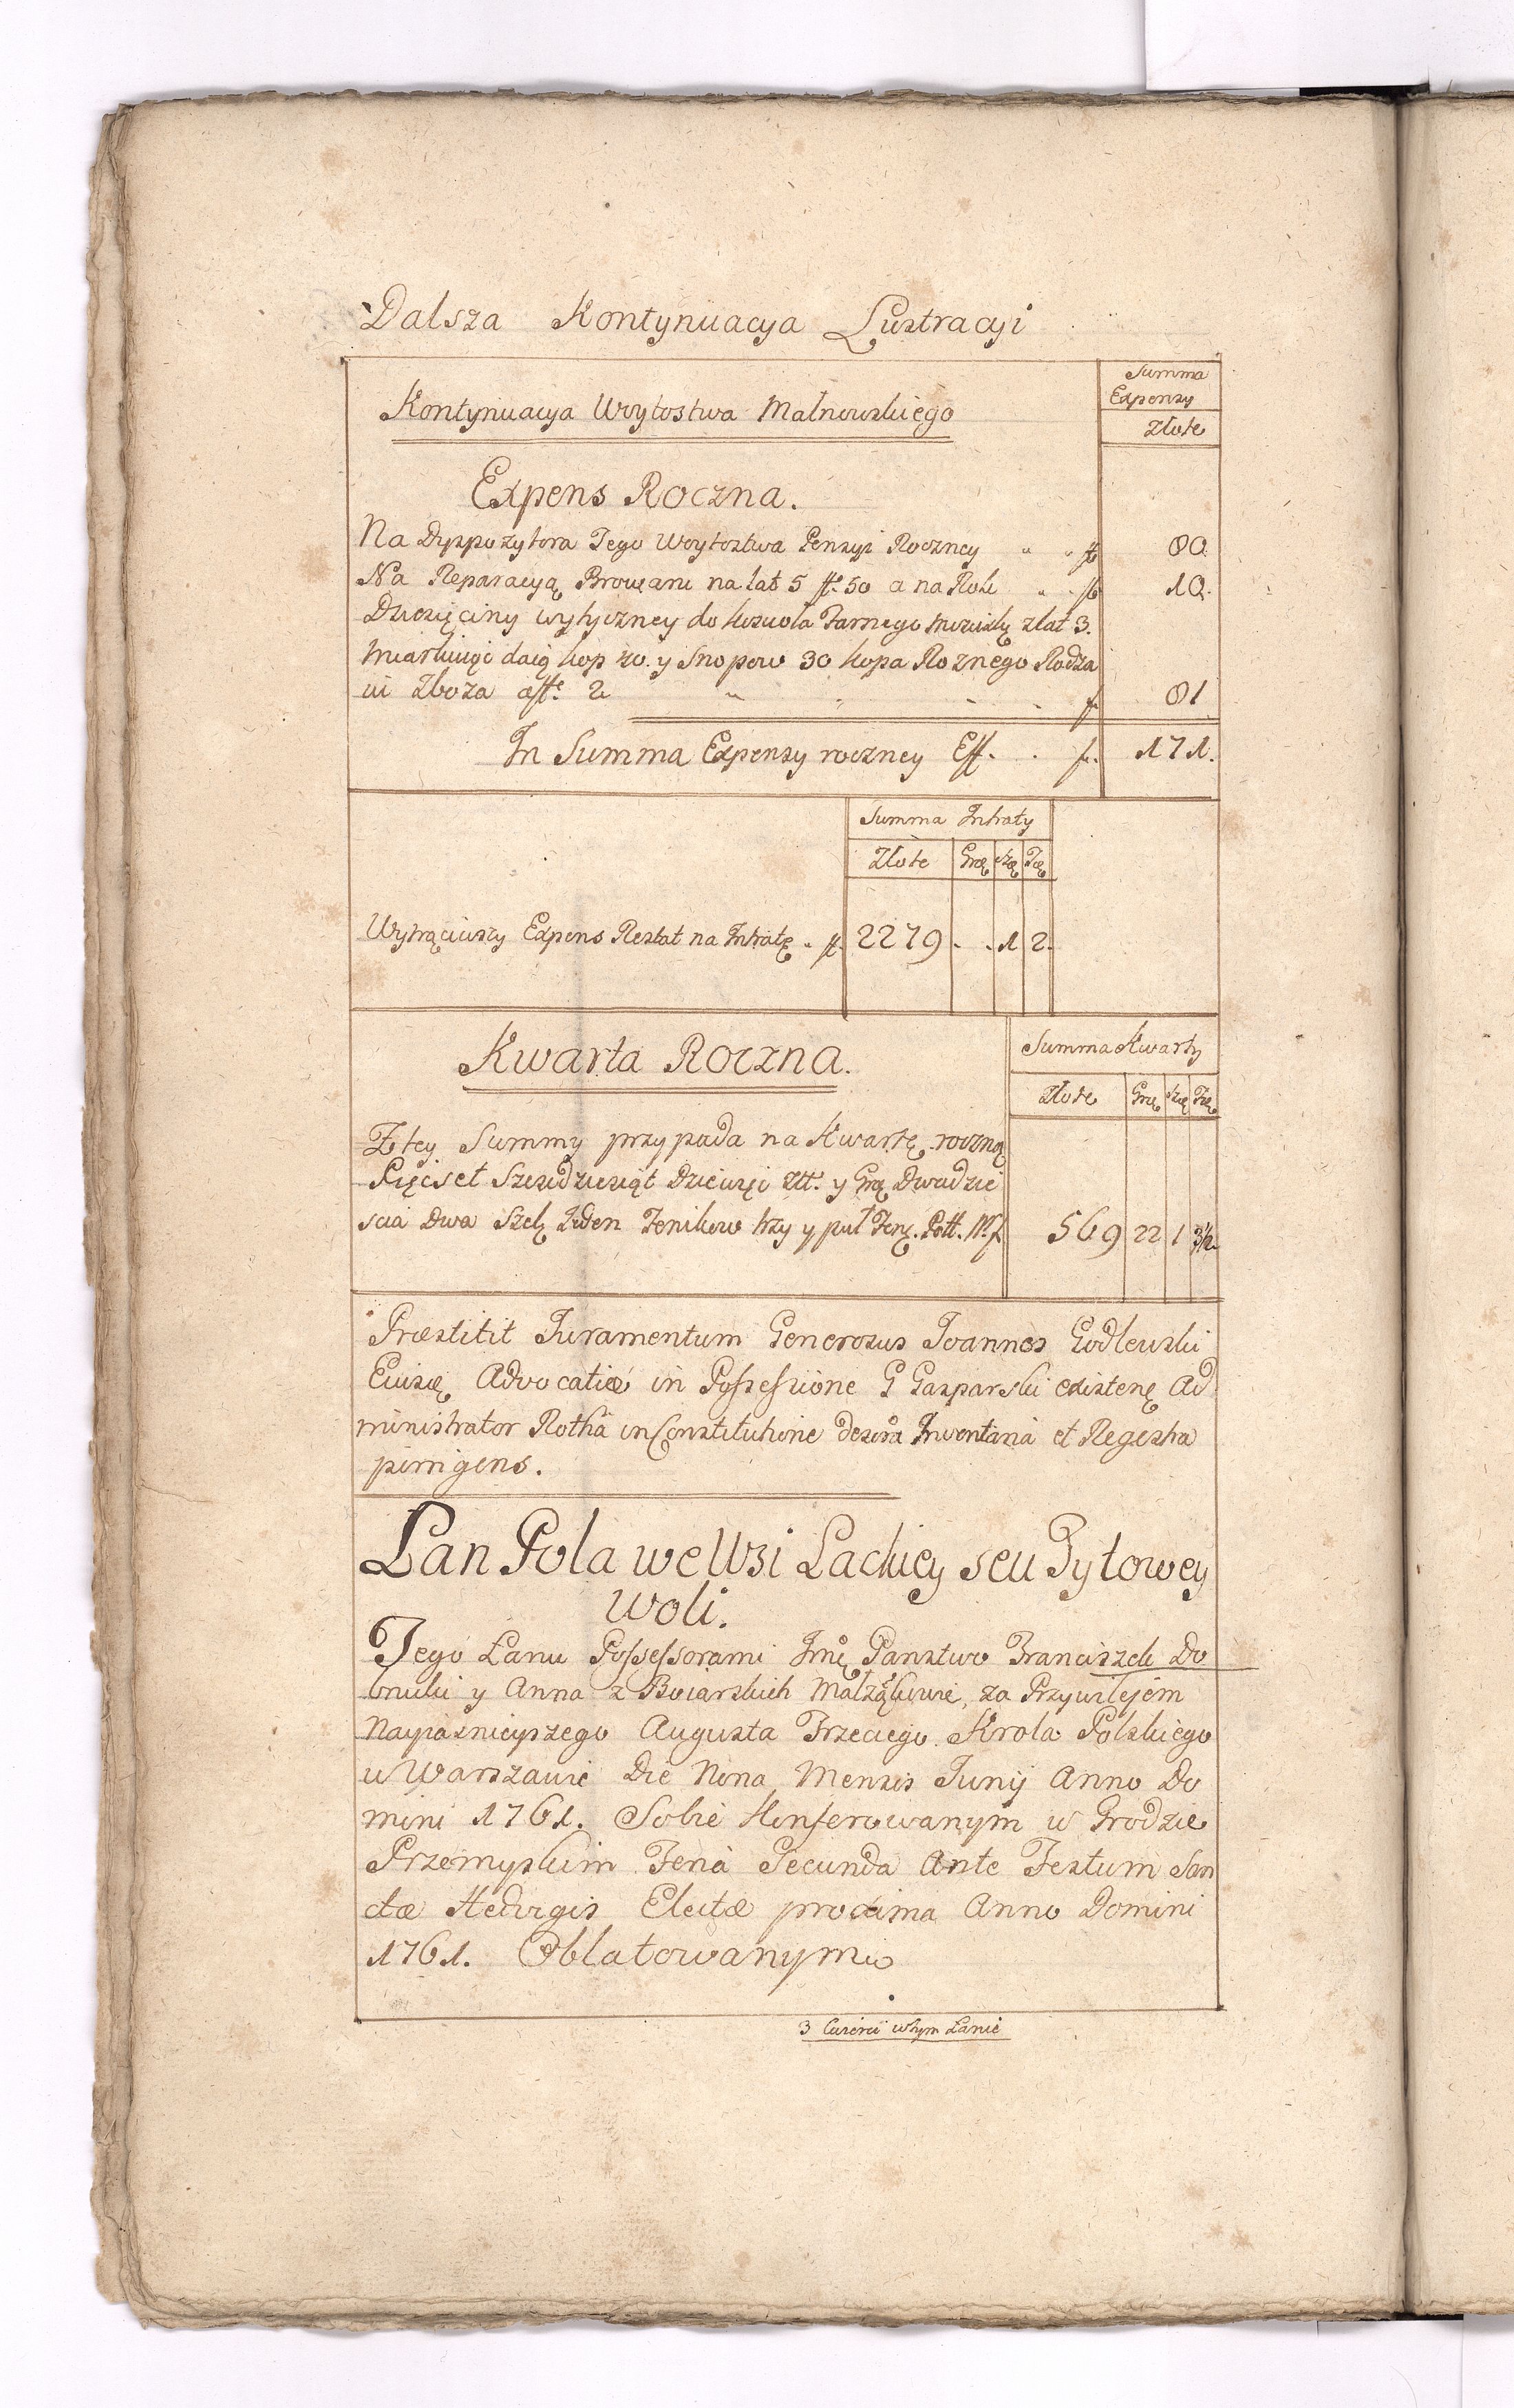 Dalsza Kontynuacya Lustracyi
Kontynuacya Woytostwa Malnowskiego
Summa
Expensy
Złote
Expens Roczna.
Na Dyspozytora Tego Woytostwa Pensyi Roczney " " f 80.
Na Reparacyą Browaru na lat 5 ff. 50 a na Rok " . f 10.
Dziesięciny wytyczney do Kościoła Farnego z lat 3.
miarkuiąc daią kop 40. y Snopow 30 kopa Roznego Rodza
iu Zboza a ff. 2 f. 81
In Summa Expensy roczney Eff. . f. 171.
Summa Intraty
Złote Gro Sze
Wytrąciwszy Expens Restat na Intratę . ff. 2279 . . 1 2.
Kwarta Roczna.
Summa Kwarty
Złote Gro Sze
Z tey Summy przypada na Kwartę roczną
Pięcset Szesdziesiąt Dziewięć Złł. y Gro Dwadzie
scia Dwa Szelą Ieden Fenikow trzy y puł Feną. Poll. N. f. 569 22 1 3½.
Præstitit Juramentum Generosus Joannes Godlewski
Advocatiæ in Possessione G Gasparski existenę Ad
ministrator Rothâ in Constitutione Inventaria et Regestra
.
Łan Pola we Wsi Lackiey seu Tytowey
Woli.
Tego Łanu Possessorami Imę Państwo Franciszek Do
brucki y Anna z Boiarskich Małżąkowie, za Przywilejem
Nayiasnieyszego Augusta Trzeciego Krola Polskiego
w Warszawie Die Nona Mensis Junij Anno Do
mini 1761. Sobie Konferowanym w Grodzie
Przemyskim Feria Secunda Ante Festum San
ctæ Hedvigis Electæ proxima Anno Domini
1761. Oblatowanym
3 Cwierci w tym Łanie